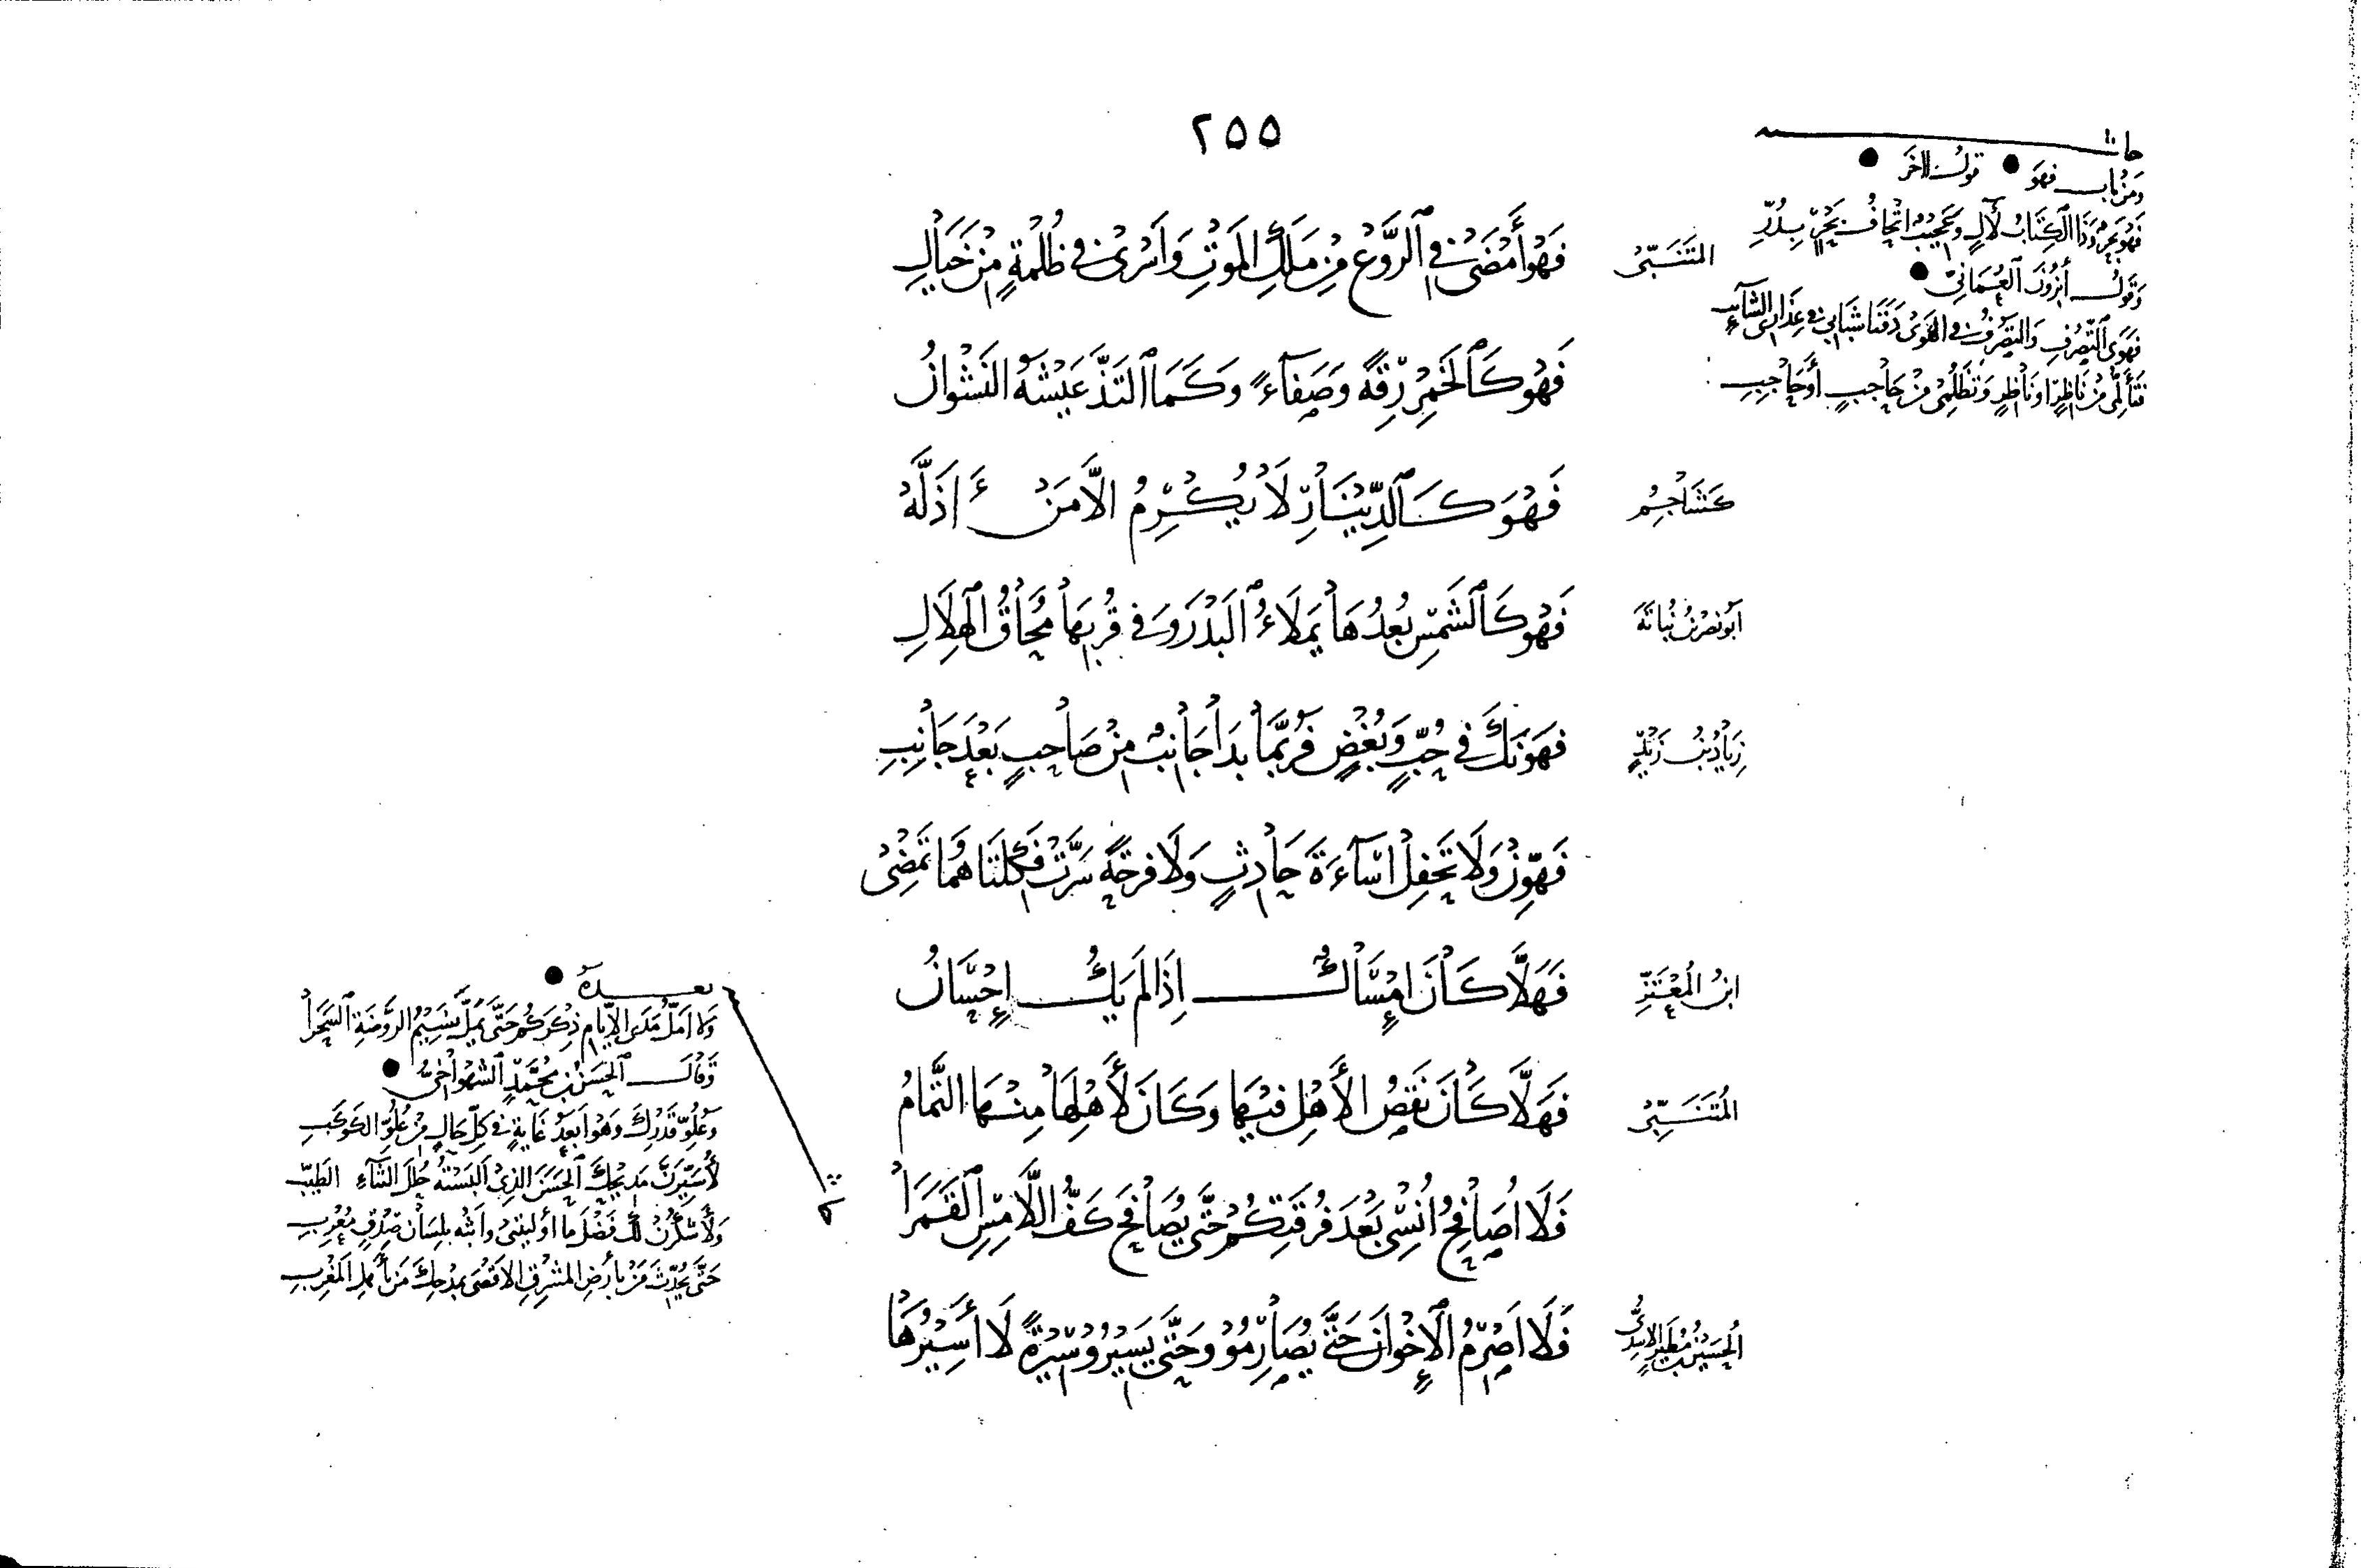 ٢٥٥
حاشـ
وَمِنْ باب فهو ● قولُ الآخَر ●
وَقولُ أَبْزُونَ العُمَانِيّ ●
فَتَأَلُّمِى مِنْ نَاظِرٍ أَوْ نَاظِرٍ وَتَظَلُّمِى مِنْ حَاجِبٍ أَوْ حَاجِبِ
المُتَنَبِّىُّ
فَهُوَ أَمْضَىٰ فِى ٱلرَّوْعِ مِنْ مَلَكِ المَوْتِ وَأَسْرَىٰ فِى ظُلْمَةٍ مِنْ خَيَالِ
فَهُوَ كَٱلخَمْرِ رِقَّةً وَصَفَآءً وَكَمَا ٱلْتَذَّ عَيْشَهُ النَشْوَانُ
كشَاجِمُ
فَهُوَ كَٱلدِّيْنَارِ لَا يُكْرِمُ إلَّا مَنْ أَذَلَّهْ
أبُو نَصْرِ بنُ نُبَاتَةَ
فَهُوَ كَٱلشَّمْسِ بُعْدُهَا يَمْلَاءُ ٱلبَدْرَ وَفِى قُرْبِهَا مُحَاقُ ٱلهِلَالِ
زِيَادُ بنُ زَيْدٍ
فَهَوْنَكَ فِى حُبٍّ وَبُغْضٍ فَرُبَّمَا بَدَا جَانِبٌ مِنْ صَاحِبٍ بَعْدَ جَانِبِ
فَهَوِّنْ وَلَا تَحْفِلْ اسَآءَةَ حَادِثٍ وَلَا فرحَةً سَرَّتْ فَكِلْتَاهُمَا تَمْضِىْ
ابنُ المُعْتَزِّ
فَهَلَّا كَانَ امْسَاكٌ إِذَا لَمْ يَكُ إِحْسَانُ
المُتَنَبِّىُّ
فَهَلَّا كَانَ نَقصُ الأَهْلِ فيْهَا وَكَانَ لأَهْلِهَا مِنْهَا التَّمَامُ
فَلَا أُصَافِحُ أُنْسِى بَعْدَ فُرقَتِكُمْ حَتَّى يُصَافِحَ كَفُّ اللَّامِسِ ٱلقَمَرَا
الحُسَيْنُ بْنُ مُطَيْرٍ الأسدِىُّ
فَلَا أَصْرِمُ ٱلإِخْوَانَ حَتَّى يُصَارِمُوْ وَحَتَّى يَسِيْرُوْ سِيْرَةً لَا أَسِيْرُهَا
بعـدهُ ●
وَلَا أمَلُّ مَدَى الأيَّامِ ذِكْرَكُمُ حَتَّى يَمَلَّ نَسِيْمُ الرَّوْضَةِ ٱلسَّحَرَا
وَقَالَ ٱلحَسَنُ بنُ مُحَمَّدٍ ٱلشهْوَاجِىُّ ●
وَعُلُوِّ قَدْرِكَ وَهْوَ أَبعَدُ غَايَةٍ فِى كلِّ حَالٍ مِنْ عُلُوِّ الكَوكَبِ
لأُسَيِّرَنَّ مَدِيْحَكَ ٱلحَسَنَ الذِى أَلبَسْتَهُ حُلَلَ الثَّنَآءِ الطَيِّبِ
وَلأَشْكُرَنَّ لَكَ فَضْلَ مَا أَوْلَيْتَنِى وأبُثُّه بلِسَانِ صِدْقٍ مُعْرِبِ
حَتَّى يُحَدِّثَ مَنْ بأَرْضِ المشْرِقِ الأَقْصَى بمَدْحِكَ مَنْ بأَهْلِ المَغْرِبِ